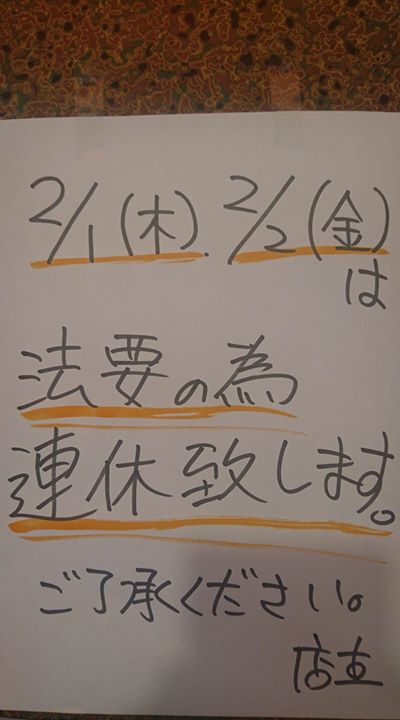 2/1(木).2/2(金)
は
法要の為
連休致します。
ご了承ください。
店主